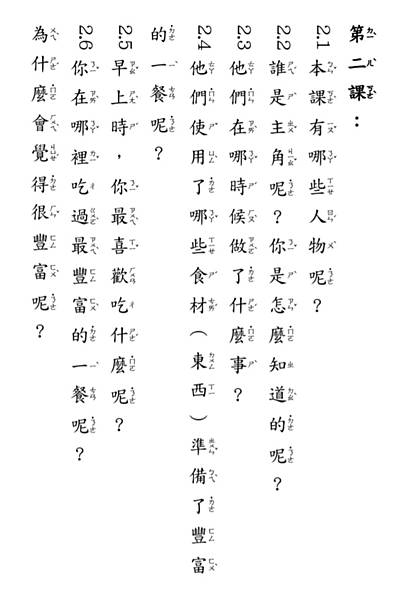 第二課：
2.1 本課有哪些人物呢？
2.2 誰是主角呢？你是怎麼知道的呢？
2.3 他們在哪時候做了什麼事？
2.4 他們使用了哪些食材（東西）準備了豐富
的一餐呢？
2.5 早上時，你最喜歡吃什麼呢？
2.6 你在哪裡吃過最豐富的一餐呢？
為什麼會覺得很豐富呢？